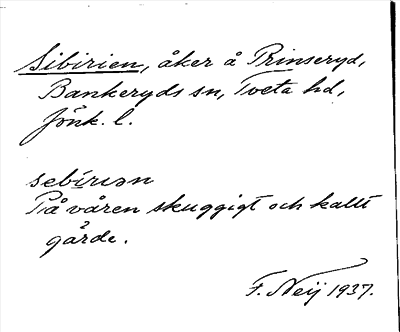 Sibirien, åker å Prinseryd,
Bankeryds sn, Tveta hd,
Jönk. l.
sebírıən
På våren skuggigt och kallt
gärde.
F. Neij 1937.